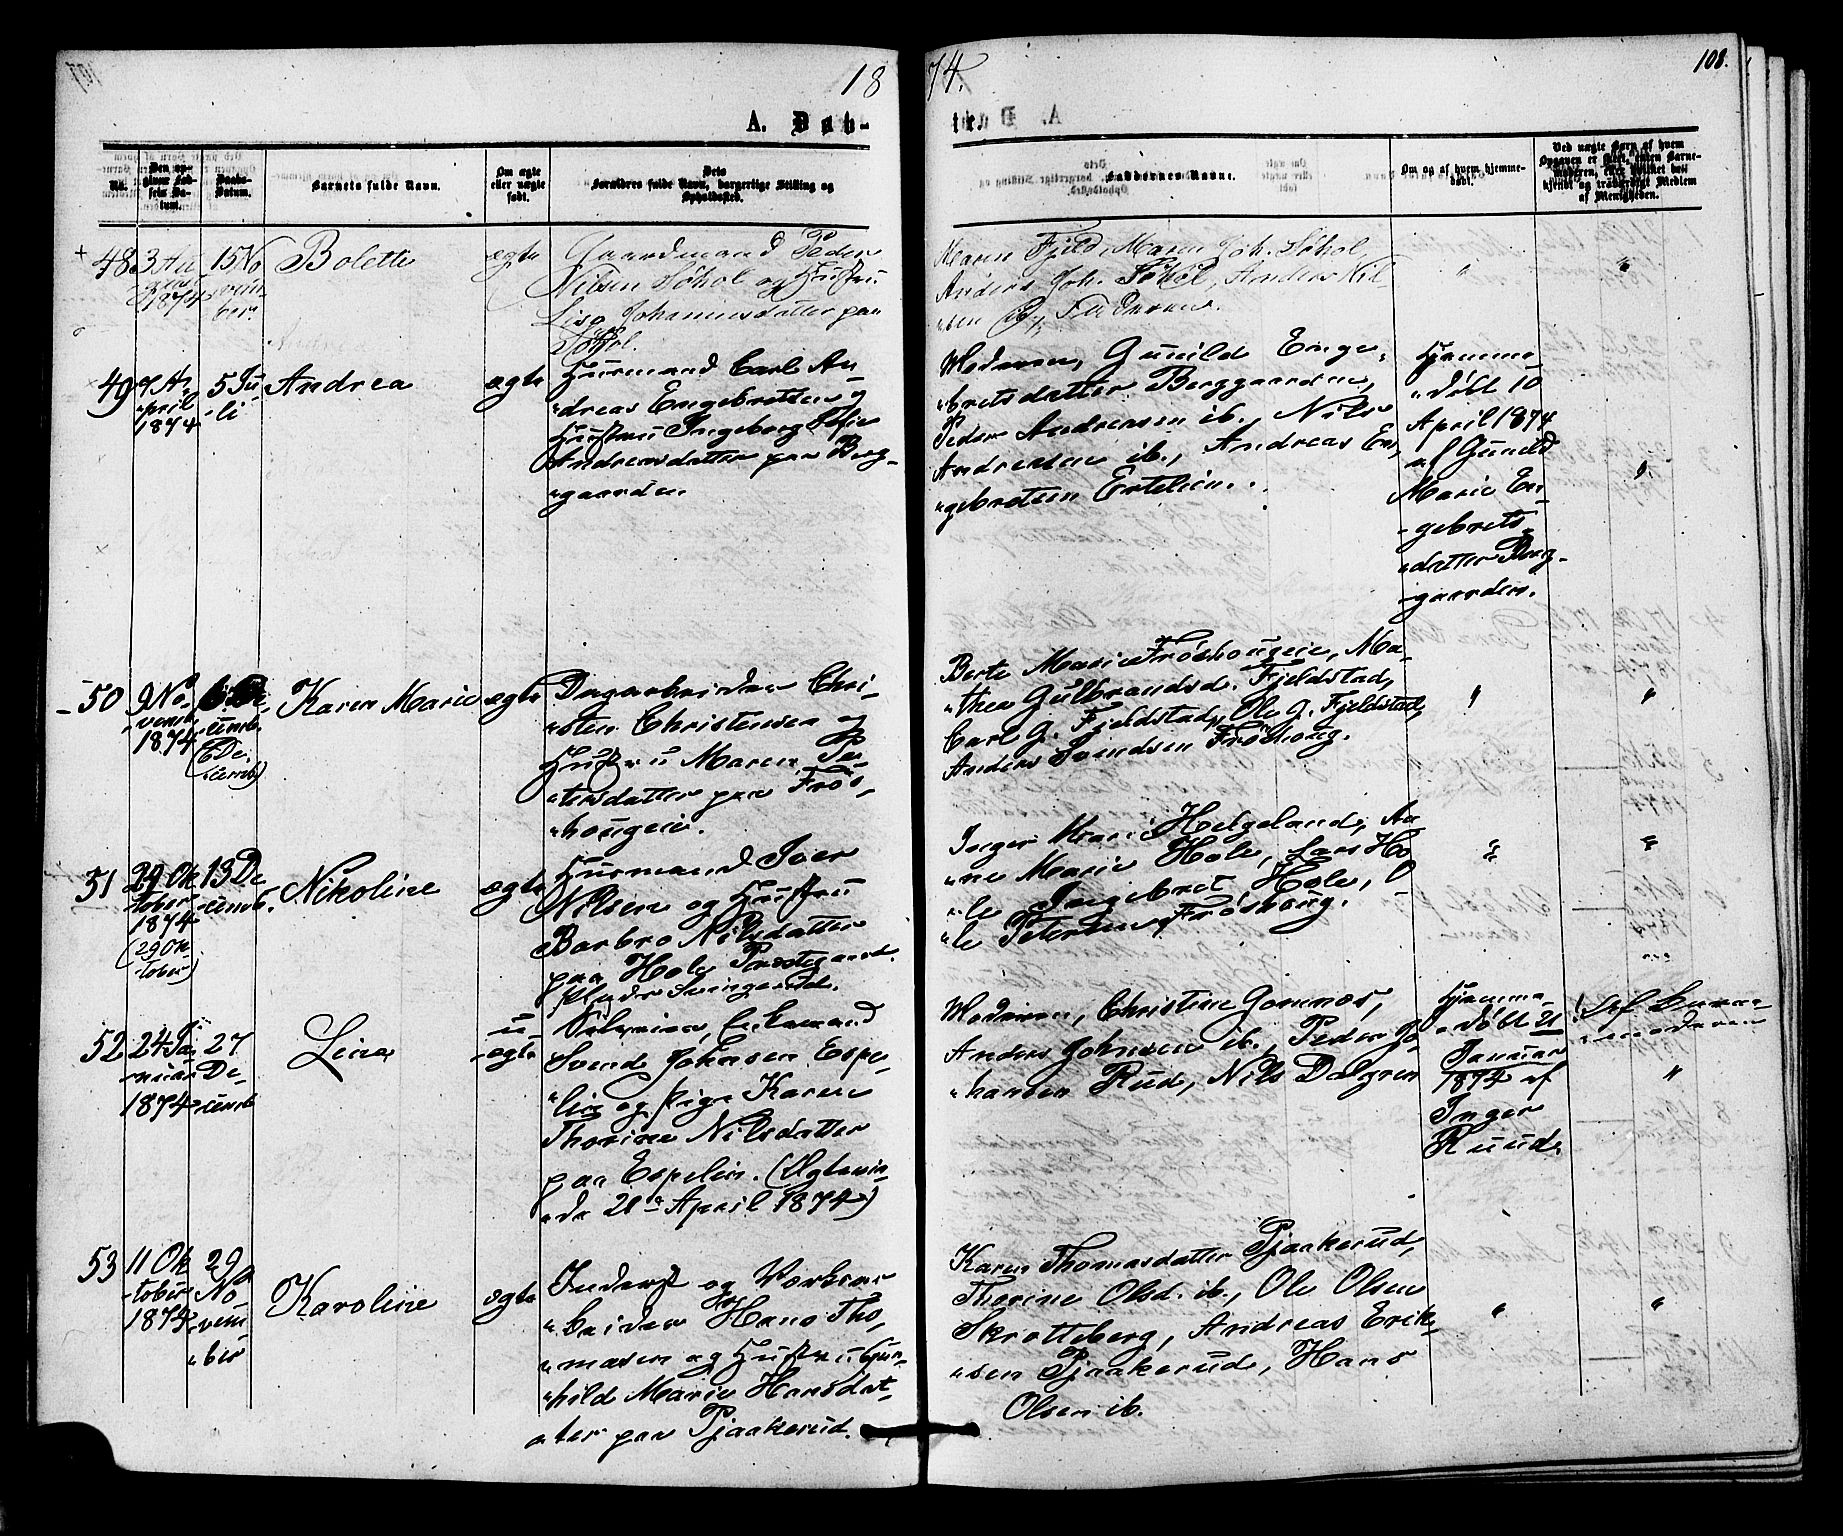 18 74. 108.
A. Døb- te.
No.
Den op-
given Fød-
sels Da-
tum.
Daabs-
Datum.
Barnets fulde Navn.
Om ægte
eller uægte
født.
Dets
Forældres fulde Navn, borgerlige Stilling og
Opholdssted.
Faddernes Navne.
Om og af hvem hjemme-
døbt.
Ved uægte Børn af hvem
Opgaven er skeet, enten Barne-
moderen, eller hvilket bei
kjendt og troværdigt Medlem
af Menigheden.
48
3 Au
gust
1874
15 No
vem-
ber.
Bolette
ægte
Gaardmand Peder
Nilsen Søhol og Hustru
Lise Johannesdatter paa
Søhol.
Maren Fjeld, Maren Joh. Søhol,
Anders Joh. Søhol, Anders Nil
sen By, Faderen.
"
"
49
7 A-
pril
1874
5 Ju-
li
Andrea
ægte
Husmand Carl An-
dreas Engebretsen og
Hustru Ingeborg Sofie
Andreasdatter paa Berg-
gaarden
Moderen, Gunild Enge-
bretsdatter Berggaarden,
Peder Andersen ib., Nils
Andersen ib., Andreas En-
gebretsen Ertelien.
Hjemme-
døbt 10
April 1874
af Gunild
Marie En-
gebrets-
datter Berg-
gaarden.
"
50
9 No-
vemb.
1874
6 De-
cemb.
(6 De-
cemb)
Karen Marie
ægte
Dagarbeider Chri-
sten Christensen og
Hustru Maren Pe-
tersdatter paa Frøs-
hougeie.
Berte Marie Frøshougeie, Ma-
thea Gulbrandsd. Fjeldstad,
Carl G. Fjeldstad, Ole G. Fjeldstad,
Anders Svendsen Frøshoug.
"
"
51
29 Ok
tober
1874
(29 Ok-
tober)
13 De
cemb.
Nikoline
ægte
Husmand Iver
Nilsen og Hustru
Barbro Nilsdatter
paa Hole Præstegaard.
Plads Svingerud.
Inger Marie Helgeland, An
ne Marie Hole, Lars Ho
le, Ingebret Hole, O
le Petersen Frøshoug.
"
"
52
24 Ja
nuar
1874
27
De-
cemb
Lina
u-
ægte
Selveier, Enkemand
Svend Johnsen Espe-
lien og Pige Karen
Thorine Nilsdatter
paa Espelien. (Ægtevi-
de 21de April 1874)
Moderen, Christine Gomnæs,
Anders Johnsen ib., Peder Jo-
hansen Rud, Nils Dalgren
Hjemme-
døbt 21
Januar
1874 af
Inger
Ruud.
Af Barne-
moderen
"
53
11 Ok
tober
1874
29
No
vem-
ber
Karoline
ægte
Inderst og Værksar-
beider Hans Tho-
masen og Hustru Gun-
hild Marie Hansdat-
ter paa Pjaakerud.
Karen Thomasdatter Pjaakerud,
Thorine Olsd. ib., Ole Olsen
Skrotteberg, Andreas Erik-
sen Pjaakerud, Hans
Olsen ib.
"
"